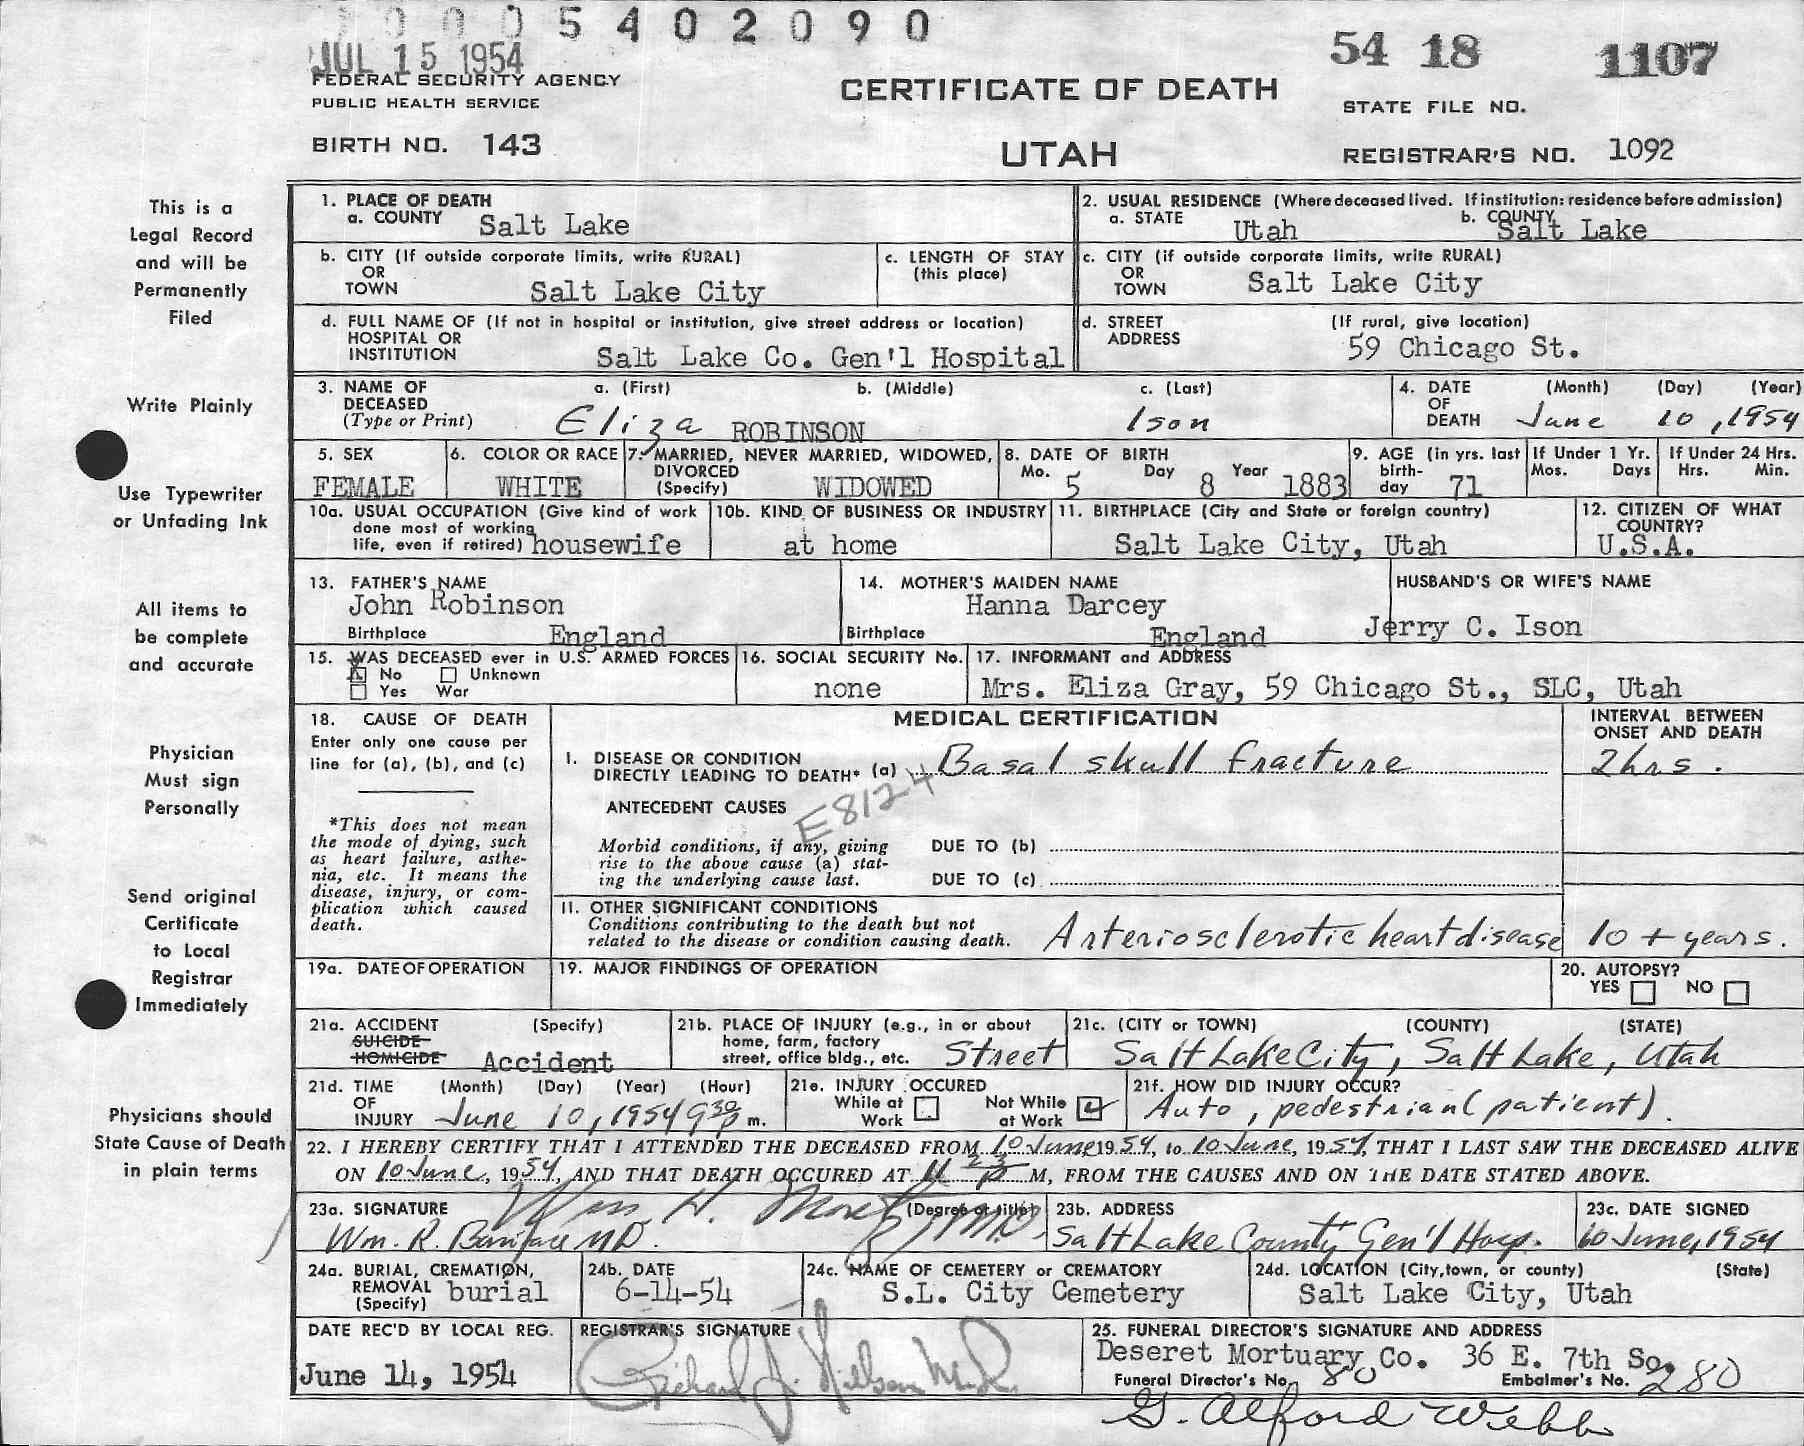 0005402090
JUL 15 1954
54 18 1107
FEDERAL SECURITY AGENCY
PUBLIC HEALTH SERVICE
CERTIFICATE OF DEATH
STATE FILE NO.
BIRTH NO. 143
UTAH
REGISTRAR'S NO. 1092
This is a
Legal Record
and will be
Permanently
Filed
Write Plainly
Use Typewriter
or Unfading Ink
All items to
be complete
and accurate
Physician
Must sign
Personally
Send original
Certificate
to Local
Registrar
Immediately
Physicians should
State Cause of Death
in plain terms
1. PLACE OF DEATH
a. COUNTY Salt Lake
2. USUAL RESIDENCE (Where deceased lived. If institution: residence before admission)
a. STATE Utah b. COUNTY Salt Lake
b. CITY (If outside corporate limits, write RURAL)
OR
TOWN Salt Lake City
c. LENGTH OF STAY
(this place)
c. CITY (if outside corporate limits, write RURAL)
OR
TOWN Salt Lake City
d. FULL NAME OF (If not in hospital or institution, give street address or location)
HOSPITAL OR
INSTITUTION Salt Lake Co. Gen'l Hospital
d. STREET (If rural, give location)
ADDRESS 59 Chicago St.
3. NAME OF DECEASED a. (First) b. (Middle) c. (Last)
(Type or Print) Eliza ROBINSON Ison
4. DATE OF DEATH (Month) (Day) (Year)
June 10, 1954
5. SEX
FEMALE
6. COLOR OR RACE
WHITE
7. MARRIED, NEVER MARRIED, WIDOWED,
DIVORCED
(Specify) WIDOWED
8. DATE OF BIRTH
Mo. 5 Day 8 Year 1883
9. AGE (in yrs. last
birth-
day 71
If Under 1 Yr.
Mos. Days
If Under 24 Hrs.
Hrs. Min.
10a. USUAL OCCUPATION (Give kind of work
done most of working
life, even if retired) housewife
10b. KIND OF BUSINESS OR INDUSTRY
at home
11. BIRTHPLACE (City and State or foreign country)
Salt Lake City, Utah
12. CITIZEN OF WHAT
COUNTRY?
U.S.A.
13. FATHER'S NAME
John Robinson
Birthplace England
14. MOTHER'S MAIDEN NAME
Hanna Darcey
Birthplace England
HUSBAND'S OR WIFE'S NAME
Jerry C. Ison
15. WAS DECEASED ever in U.S. ARMED FORCES
X No Unknown
Yes War
16. SOCIAL SECURITY No.
none
17. INFORMANT and ADDRESS
Mrs. Eliza Gray, 59 Chicago St., SLC, Utah
18. CAUSE OF DEATH
Enter only one cause per
line for (a), (b), and (c)
*This does not mean
the mode of dying, such
as heart failure, asthe-
nia, etc. It means the
disease, injury, or com-
plication which caused
death.
MEDICAL CERTIFICATION
INTERVAL BETWEEN
ONSET AND DEATH
I. DISEASE OR CONDITION
DIRECTLY LEADING TO DEATH* (a) Basal skull fracture 2 hrs.
ANTECEDENT CAUSES
E8124
Morbid conditions, if any, giving
rise to the above cause (a) stat-
ing the underlying cause last.
DUE TO (b)
DUE TO (c)
11. OTHER SIGNIFICANT CONDITIONS
Conditions contributing to the death but not
related to the disease or condition causing death. Arteriosclerotic heart disease 10 + years.
19a. DATE OF OPERATION
19. MAJOR FINDINGS OF OPERATION
20. AUTOPSY?
YES NO
21a. ACCIDENT (Specify)
SUICIDE
HOMICIDE Accident
21b. PLACE OF INJURY (e.g., in or about
home, farm, factory
street, office bldg., etc. Street
21c. (CITY or TOWN) (COUNTY) (STATE)
Salt Lake City, Salt Lake, Utah
21d. TIME (Month) (Day) (Year) (Hour)
OF
INJURY June 10, 1954 9 30 p m.
21e. INJURY OCCURED
While at Work
Not While at Work
21f. HOW DID INJURY OCCUR?
Auto, pedestrian (patient).
22. I HEREBY CERTIFY THAT I ATTENDED THE DECEASED FROM 10 June 1954, to 10 June, 1954, THAT I LAST SAW THE DECEASED ALIVE
ON 10 June, 1954, AND THAT DEATH OCCURED AT 11 23 P M, FROM THE CAUSES AND ON THE DATE STATED ABOVE.
23a. SIGNATURE (Degree or title)
Wm. R. MD.
Wm. H. M.D.
23b. ADDRESS
Salt Lake County Gen'l Hosp.
23c. DATE SIGNED
10 June, 1954
24a. BURIAL, CREMATION,
REMOVAL
(Specify) burial
24b. DATE
6-14-54
24c. NAME OF CEMETERY or CREMATORY
S.L. City Cemetery
24d. LOCATION (City, town, or county) (State)
Salt Lake City, Utah
DATE REC'D BY LOCAL REG.
June 14, 1954
REGISTRAR'S SIGNATURE
Richard J. Nielson M.D.
25. FUNERAL DIRECTOR'S SIGNATURE AND ADDRESS
Deseret Mortuary Co. 36 E. 7th So.
Funeral Director's No. 80 Embalmer's No. 280
G. Alford Webb